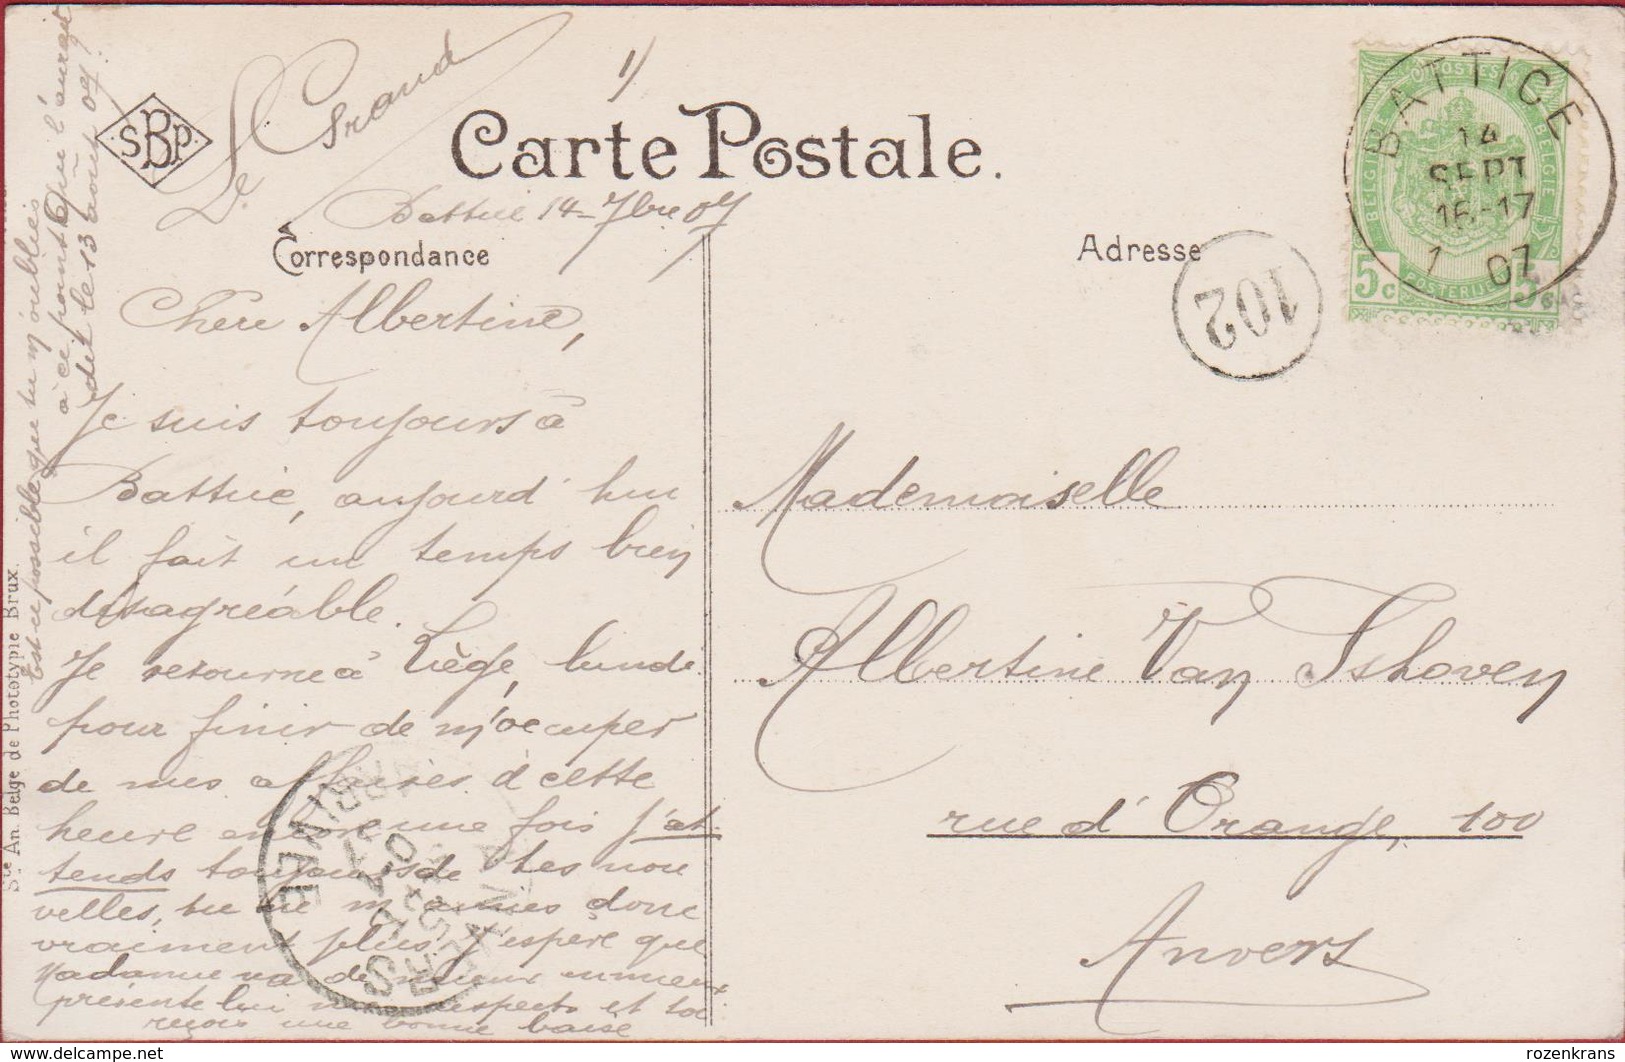 Le Grand
1/
SBP
Carte Postale.
Battice 14 - 7bre 07
Correspondance
Adresse
BATTICE
14
SEPT
16-17
1 07
BELGIQUE
POSTES
BELGIE
POSTERIJEN
5c 5c
102
Chère Albertine,
Je suis toujours à
Battice, aujourd'hui
il fait un temps bien
désagréable.
Je retourne à Liège, lundi
pour finir de m'occuper
de mes affaires à cette
heure encore une fois j'at-
tends toujours de tes nou
velles, tu ne m'aimes donc
vraiment plus. J'espère que
Madame va de mieux en mieux
présente lui mes respects et toi
reçois une bonne baise
Est-il possible que tu m'oublies
à ce point. Que l'aurait
dit le 13 août 07?
Mademoiselle
Albertine Van Ishoven
rue d'Orange, 100
Anvers
ANTWERPEN
ARRIVÉE
07
Ste An. Belge de Phototypie Brux.
delcampe.net
rozenkrans